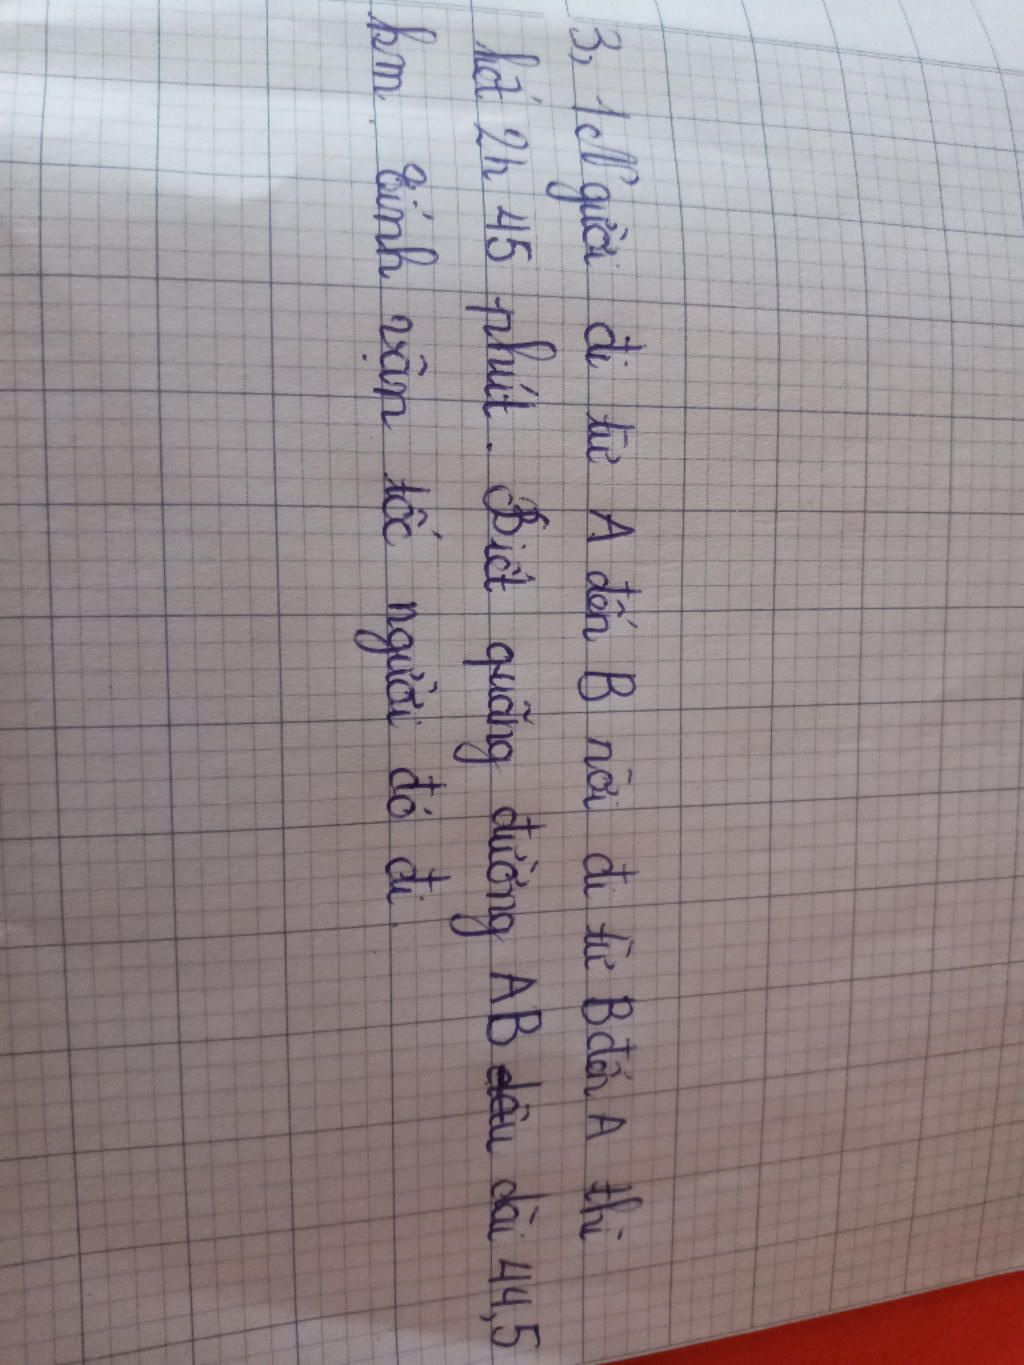 3, 1 Người đi từ A đến B rồi đi từ B đến A thì
hết 2h 45 phút. Biết quãng đường AB dài 44,5
km. Tính vận tốc người đó đi.